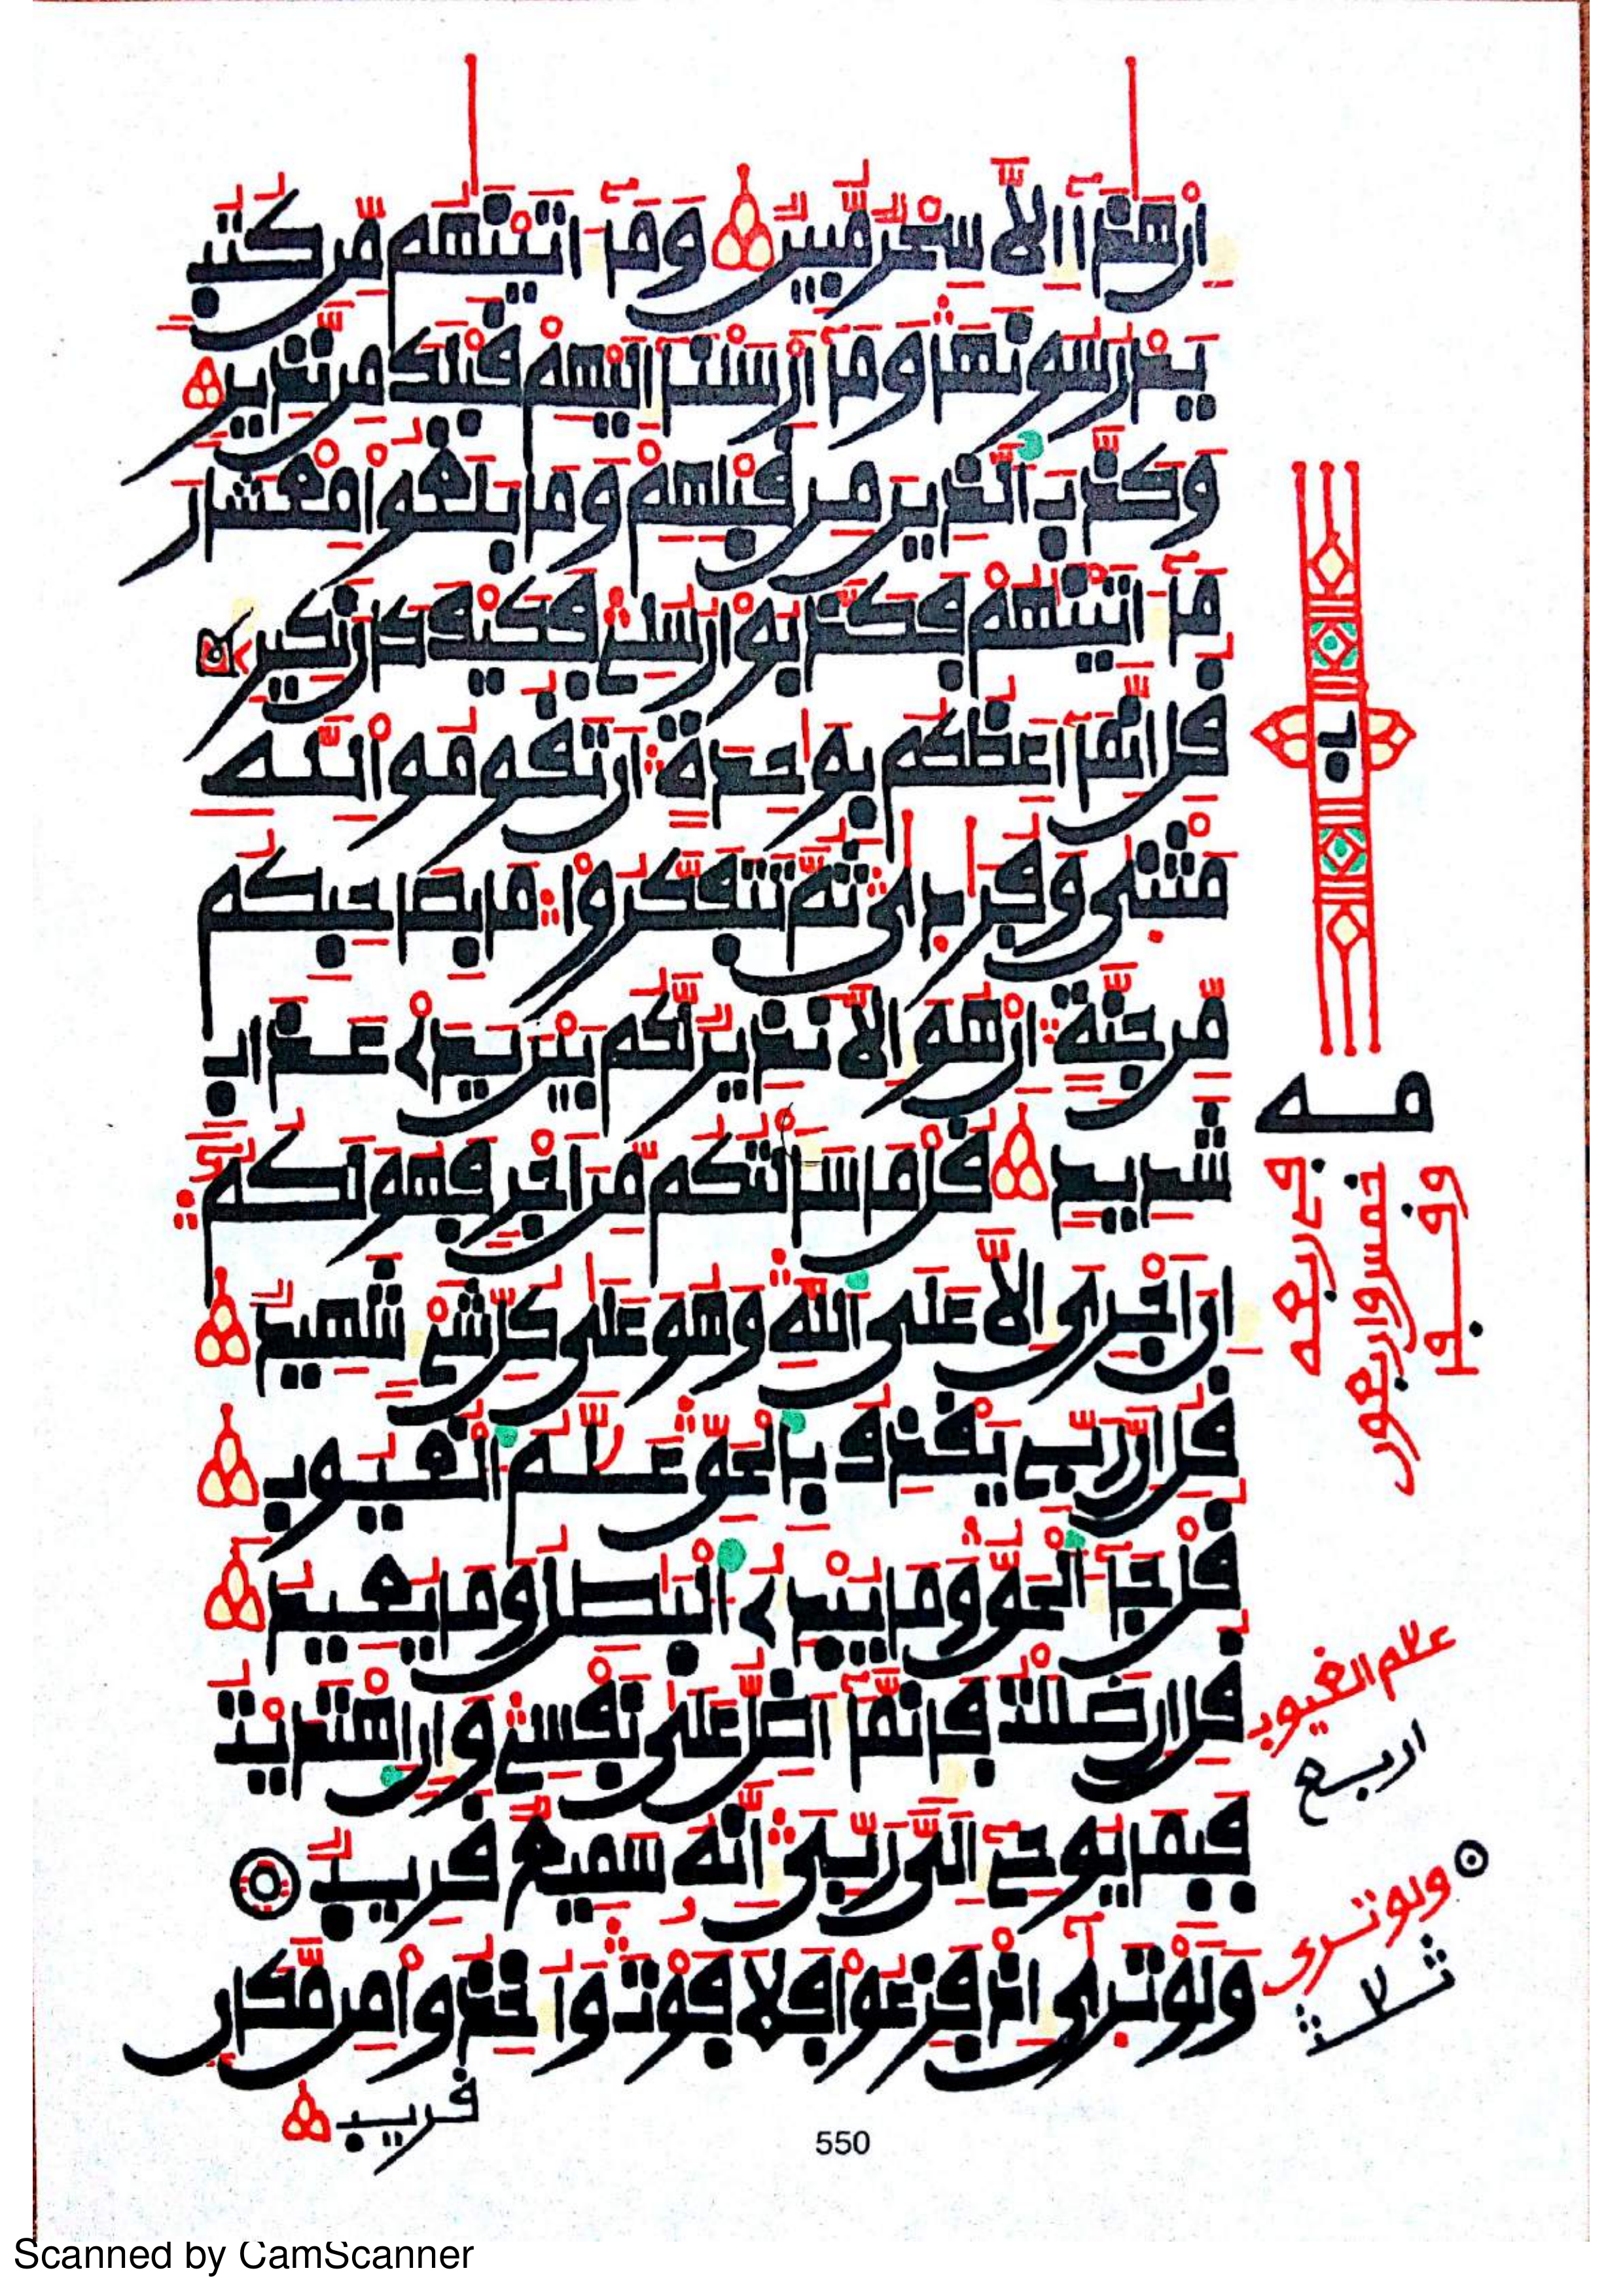 ان هذا الا سحر مبين وما اتينهم من كتب
يدرسونها وما ارسلنا اليهم قبلك من نذير
وكذب الذين من قبلهم وما بلغوا معشار
ما اتينهم فكذبوا رسلي فكيف كان نكير
قل انما اعظكم بوحدة ان تقوموا لله
مثنى وفردى ثم تتفكروا ما بصاحبكم
من جنة ان هو الا نذير لكم بين يدى عذاب
شديد قل ما سالتكم من اجر فهو لكم
ان اجرى الا على الله وهو على كل شيء شهيد
قل ان ربي يقذف بالحق علم الغيوب
قل جاء الحق وما يبدئ البطل وما يعيد
قل ان ضللت فانما اضل على نفسي وان اهتديت
فبما يوحي الى ربى انه سميع قريب
ولو ترى اذ فزعوا فلا فوت واخذوا من مكان
قريب
مه
خمس واربعون
علام الغيوب
اربع
ولو ترى
ثلاث
550
Scanned by CamScanner